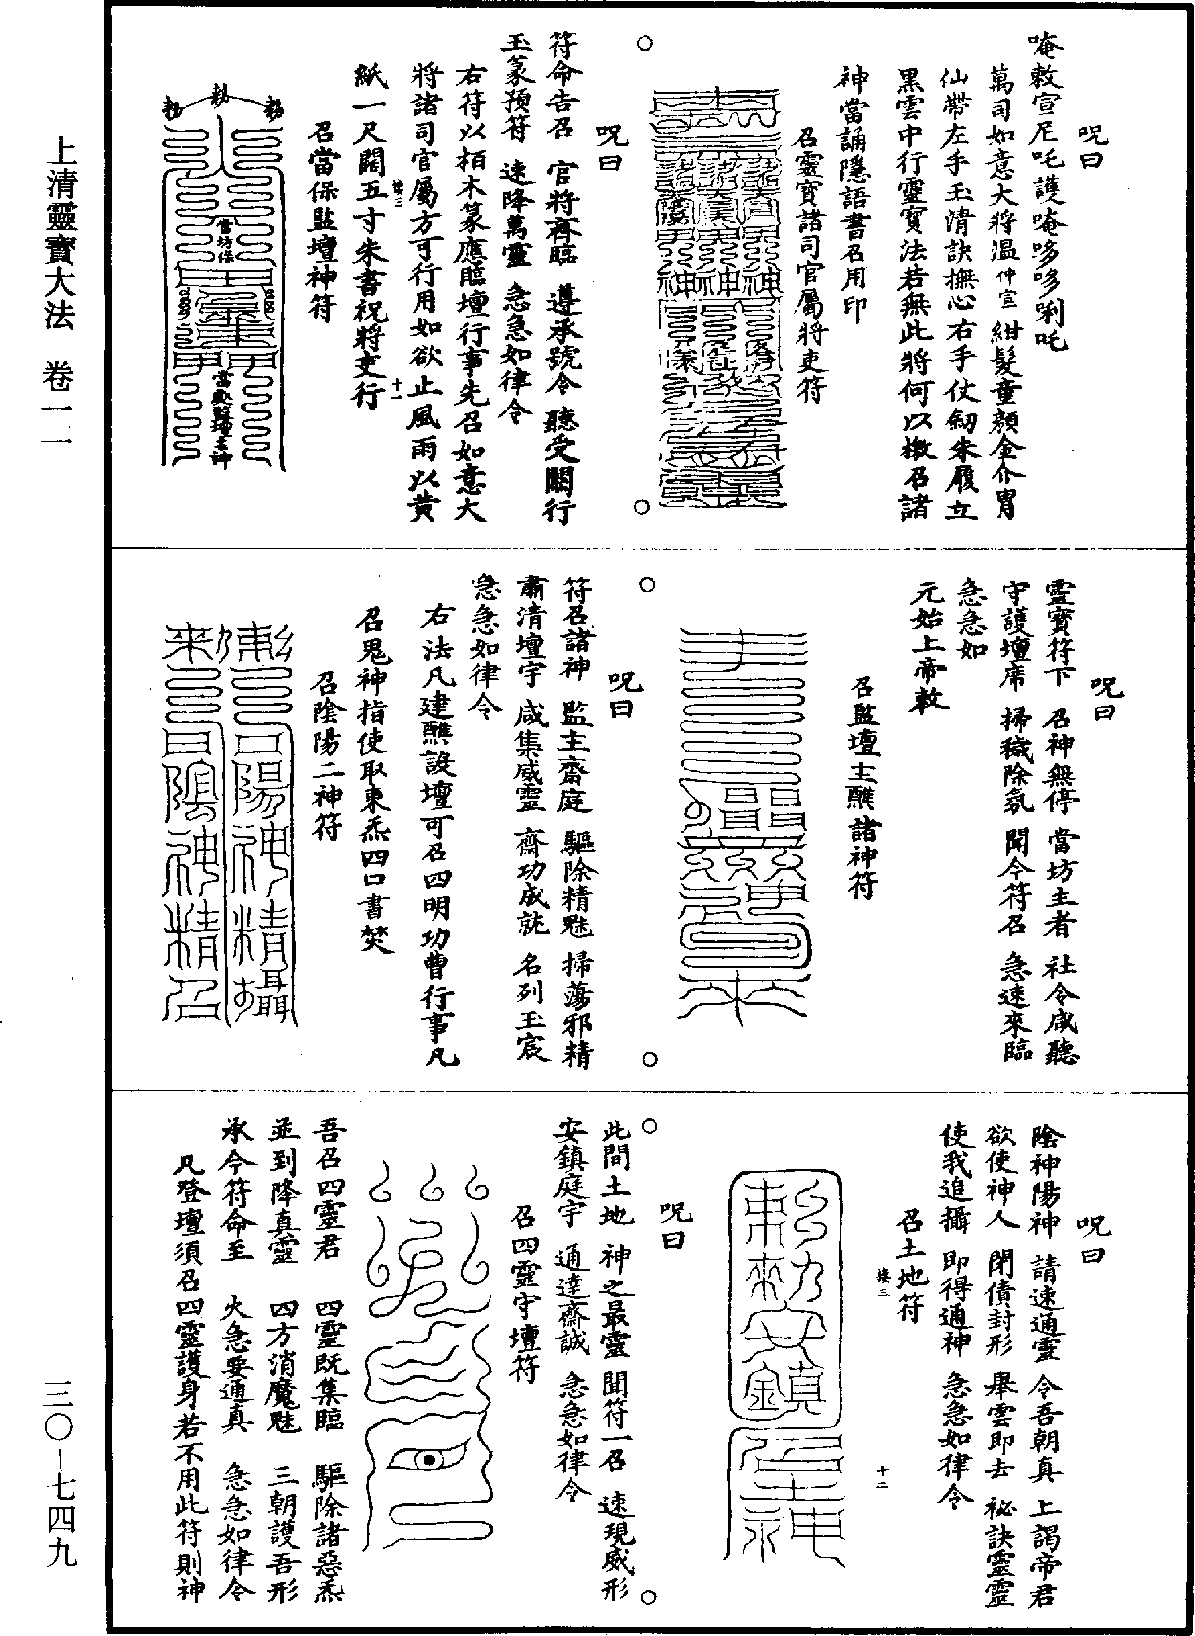 呪曰
唵敕宣尼吒護唵哆哆唎吒
萬司如意大將溫仲宣紺髮童顏金介冑
仙帶左手玉清訣撫心右手仗劒朱履立
黑雲中行靈寶法若無此將何以檄召諸
神當誦隱語書召用印
召靈寶諸司官屬將吏符
呪曰
符命告召 官將齊臨 遵承號令 聽受關行
玉篆預符 速降萬靈 急急如律令
右符以栢木篆應臨壇行事先召如意大
將諸司官屬方可行用如欲止風雨以黃
紙一尺闊五寸朱書祝將吏行
召當保監壇神符
呪曰
靈寶符下 召神無停 當坊主者 社令咸聽
守護壇席 掃穢除氛 聞今符召 急速來臨
急急如
元始上帝敕
召監壇主醮諸神符
呪曰
符召諸神 監主齋庭 驅除精魅 掃蕩邪精
肅清壇宇 咸集威靈 齋功成就 名列玉宸
急急如律令
右法凡建醮設壇可召四明功曹行事凡
召鬼神指使取東炁四口書焚
召陰陽二神符
呪曰
陰神陽神 請速通靈 令吾朝真 上謁帝君
欲使神人 閉債封形 舉雲即去 祕訣靈靈
使我追攝 即得通神 急急如律令
召土地符
呪曰
此間土地 神之最靈 聞符一召 速現威形
安鎮庭宇 通達齋誠 急急如律令
召四靈守壇符
吾召四靈君 四靈既集臨 驅除諸惡炁
並到降真靈 四方消魔魅 三朝護吾形
承今符命至 火急要通真 急急如律令
凡登壇須召四靈護身若不用此符則神
上清靈寶大法 卷一一
三〇—七四九